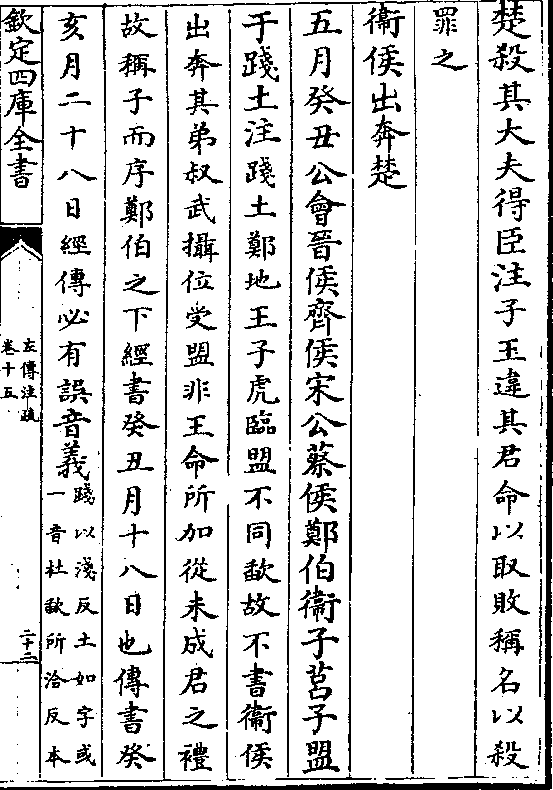 楚殺其大夫得臣注子玉違其君命以取敗稱名以殺
罪之
衞侯出奔楚
五月癸丑公會晉侯齊侯宋公蔡侯鄭伯衞子莒子盟
于踐土注踐土鄭地王子虎臨盟不同歃故不書衞侯
出奔其弟叔武攝位受盟非王命所加從未成君之禮
故稱子而序鄭伯之下經書癸丑月十八日也傳書癸
亥月二十八日經傳必有誤音義踐以淺反土如字或
一音杜歃所洽反本
欽定四庫全書
左傳注疏
卷十五
二十三